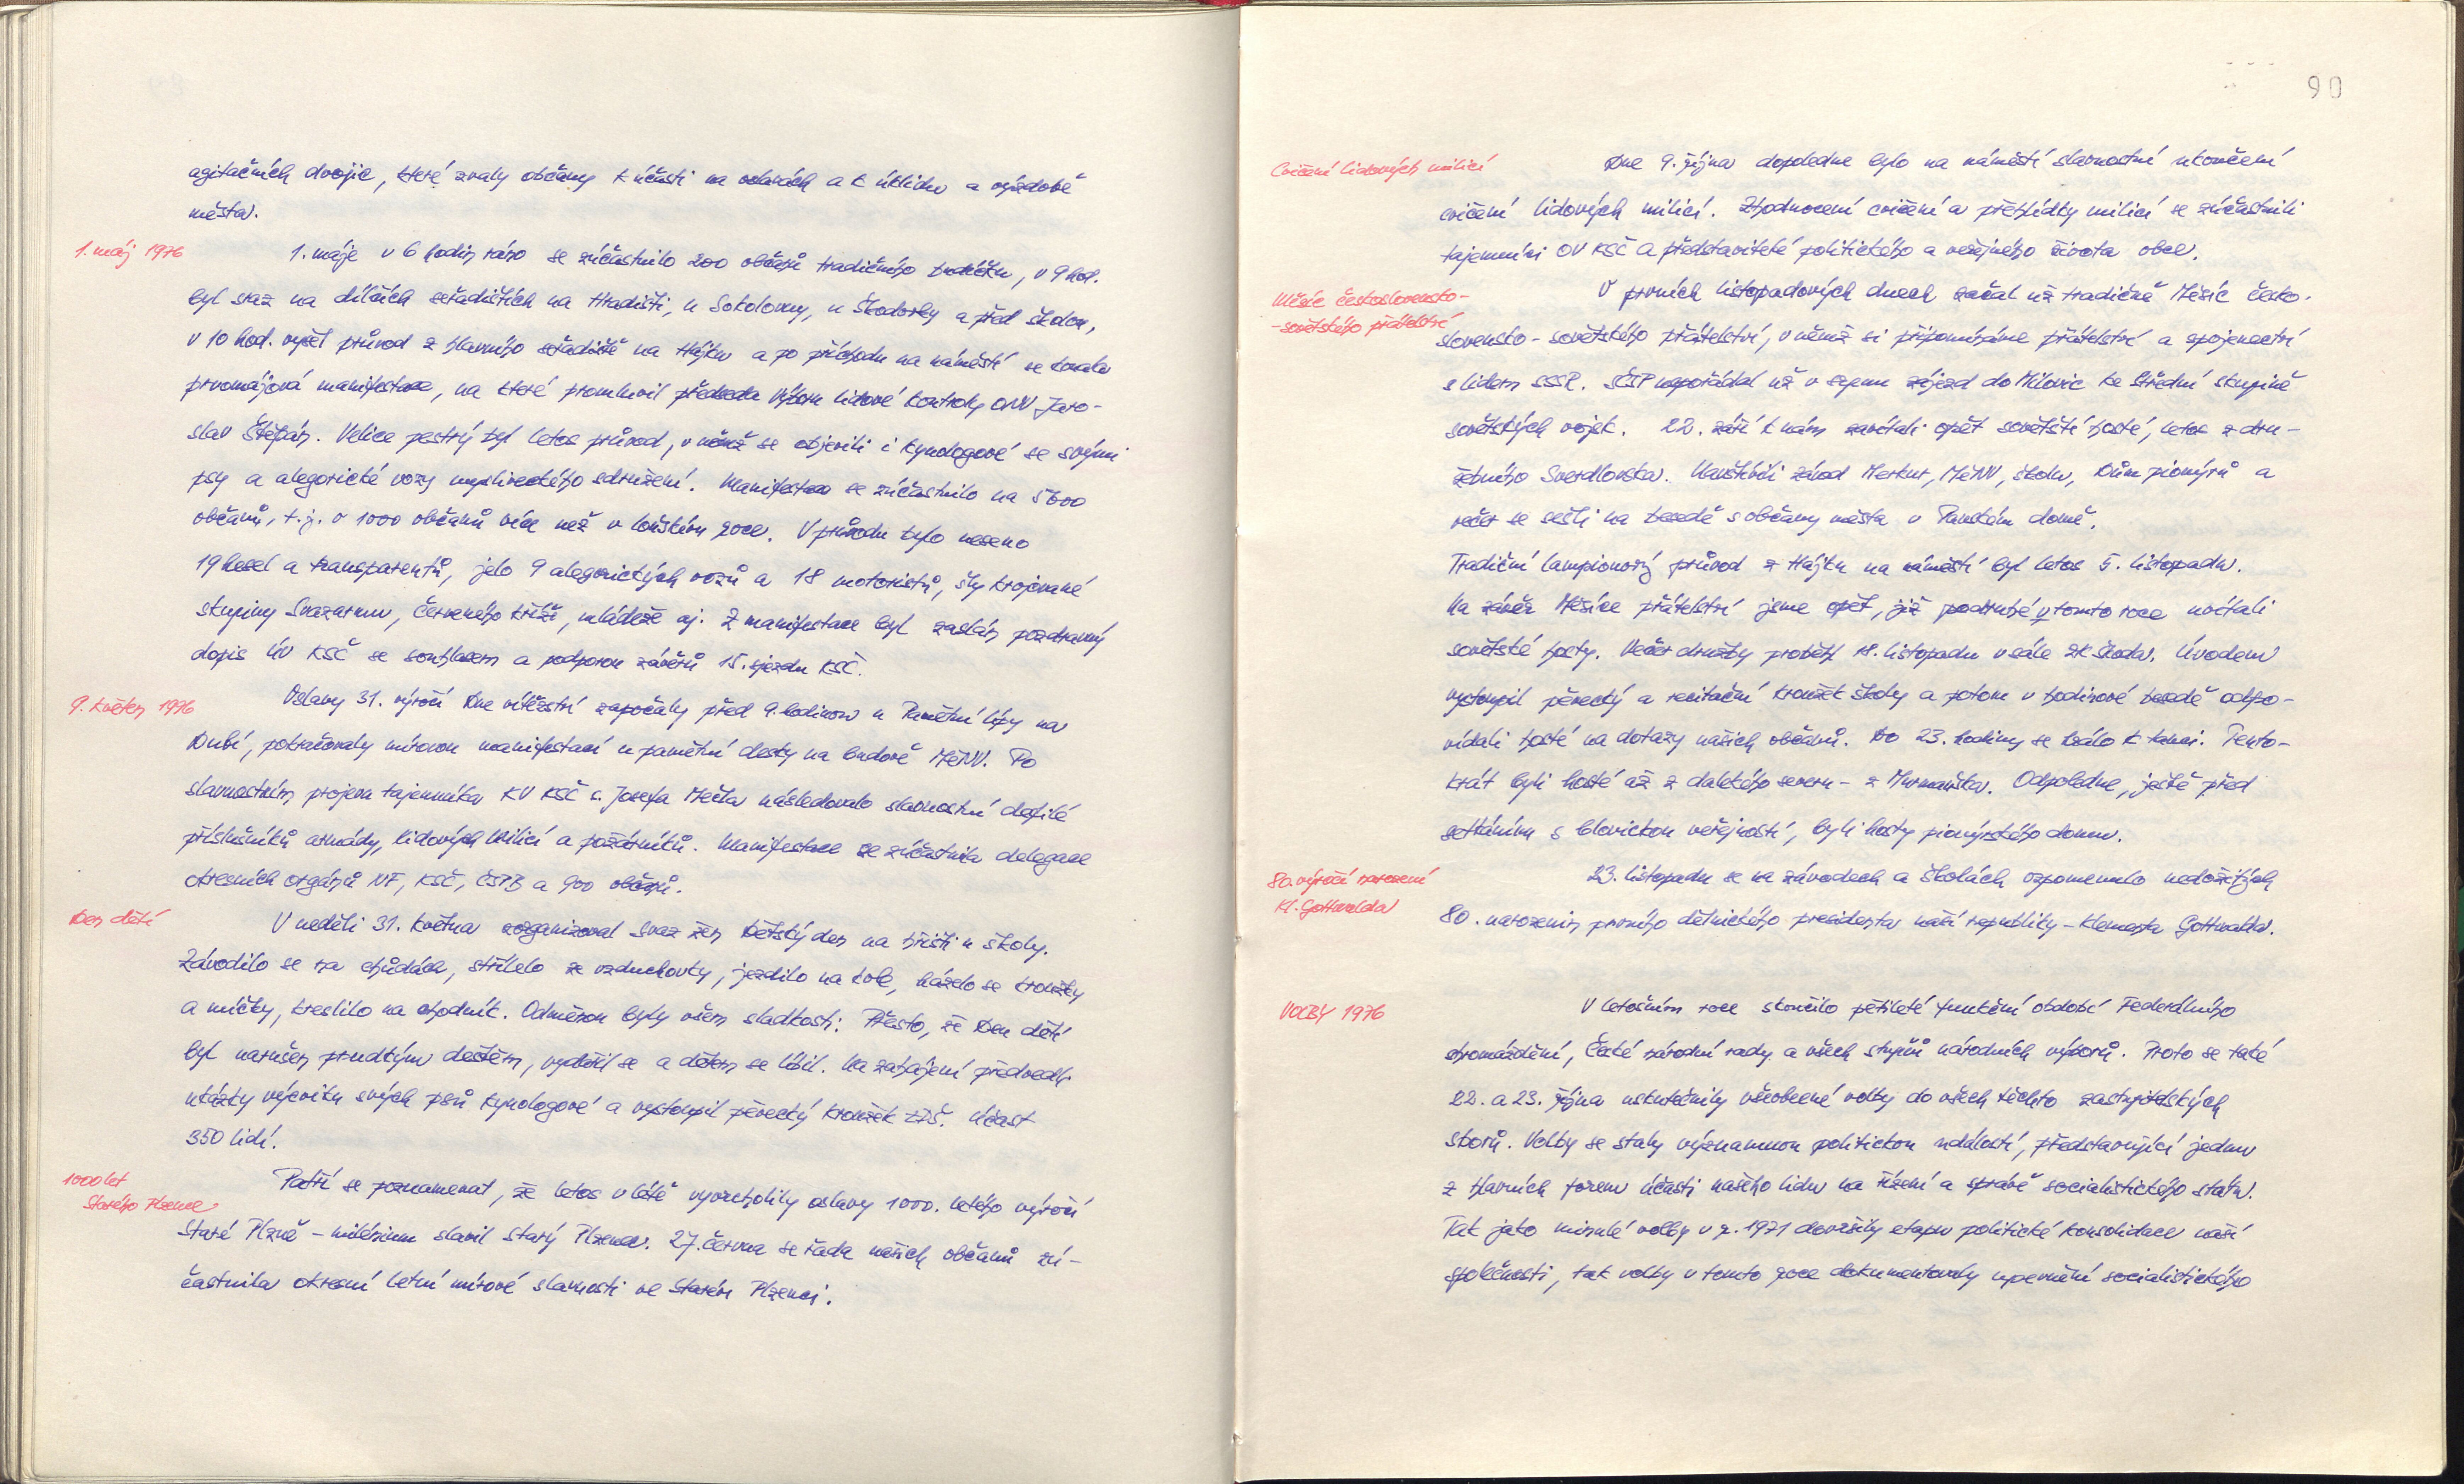 agitačních dvojic, které zvaly občany k účasti na oslavách a k úklidu a výzdobě
města.
1. máj 1976
1. máje v 6 hodin ráno se zúčastnilo 200 občanů tradičního budíčku, v 9 hod.
byl sraz na dílčích seřadištích na Hradišti, u Sokolovny, u Škodovky a před školou,
v 10 hod. vyšel průvod z hlavního seřadiště na Hájku a po příchodu na náměstí se konala
prvomájová manifestace, na které promluvil předseda Výboru lidové kontroly ONV Jaro-
slav Štěpán. Velice pestrý byl letos průvod, v němž se objevili i kynologové se svými
psy a alegorické vozy mysliveckého sdružení. Manifestace se zúčastnilo na 5600
občanů, t.j. o 1000 občanů více než v loňském roce. V průvodu bylo neseno
19 hesel a transparentů, jelo 9 alegorických vozů a 18 motoristů, šly krojované
skupiny Svazarmu, Červeného kříže, mládeže aj. Z manifestace byl zaslán pozdravný
dopis ÚV KSČ se souhlasem a podporou závěrů 15. sjezdu KSČ.
9. květen 1976
Oslavy 31. výročí Dne vítězství započaly před 9. hodinou u Památní lípy na
Dubí, pokračovaly mírovou manifestací u pamětní desky na budově MěNV. Po
slavnostním projevu tajemníka KV KSČ s. Josefa Mečla následovalo slavnostní defilé
příslušníků armády, Lidových milicí a požárníků. Manifestace se zúčastnila delegace
okresních orgánů NF, KSČ, ČSPB a 900 občanů.
Den dětí
V neděli 31. května zorganizoval Svaz žen Dětský den na hřišti u školy.
Závodilo se na chůdách, střílelo ze vzduchovky, jezdilo na kole, házelo se kroužky
a míčky, kreslilo na chodník. Odměnou byly všem sladkosti. Přesto, že Den dětí
byl narušen prudkým deštěm, vydařil se a dětem se líbil. Na zahájení předvedli
ukázky výcviku svých psů kynologové a vystoupil pěvecký kroužek ZDŠ. Účast
350 lidí.
1000 let
Starého Plzence
Patří se poznamenat, že letos v létě vyvrcholily oslavy 1000. letého výročí
Staré Plzně – milénium slavil Starý Plzenec. 27. června se řada našich občanů zú-
častnila okresní letní mírové slavnosti ve Starém Plzenci.
90
Cvičení lidových milicí
Dne 9. října dopoledne bylo na náměstí slavnostní ukončení
cvičení lidových milicí. Zhodnocení cvičení a přehlídky milicí se zúčastnili
tajemníci OV KSČ a představitelé politického a veřejného života obce.
Měsíc československo-
-sovětského přátelství
V prvních listopadových dnech začal už tradičně Měsíc česko-
slovensko-sovětského přátelství, v němž si připomínáme přátelství a spojenectví
s lidem SSSR. SČSP uspořádal už v srpnu zájezd do Milovic ke Střední skupině
sovětských vojsk. 22. září k nám zavítali opět sovětští hosté, letos z dru-
žebního Sverdlovska. Navštívili závod Merkur, MěNV, školu, Dům pionýrů a
večer se sešli na besedě s občany města v Panském domě.
Tradiční lampionový průvod z Hájku na náměstí byl letos 5. listopadu.
Na závěr Měsíce přátelství jsme opět, již podruhé v tomto roce uvítali
sovětské hosty. Večer družby proběhl 18. listopadu v sále ZK Škoda. Úvodem
vystoupil pěvecký a recitační kroužek školy a potom v hodinové besedě odpo-
vídali hosté na dotazy našich občanů. Do 23. hodiny se hrálo k tanci. Tento-
krát byli hosté až z dalekého severu – z Murmanska. Odpoledne, ještě před
setkáním s blovickou veřejností, byli hosty pionýrského domu.
80. výročí narození
Kl. Gottwalda
23. listopadu se na závodech a školách vzpomenulo nedožitých
80. narozenin prvního dělnického presidenta naší republiky – Klementa Gottwalda.
VOLBY 1976
V letošním roce skončilo pětileté funkční období Federálního
shromáždění, České národní rady a všech stupňů národních výborů. Proto se také
22. a 23. října uskutečnily všeobecné volby do všech těchto zastupitelských
sborů. Volby se staly významnou politickou událostí, představující jednu
z hlavních forem účasti našeho lidu na řízení a správě socialistického státu.
Tak jako minulé volby v r. 1971 dovršily etapu politické konsolidace naší
společnosti, tak volby v tomto roce dokumentovaly upevnění socialistického